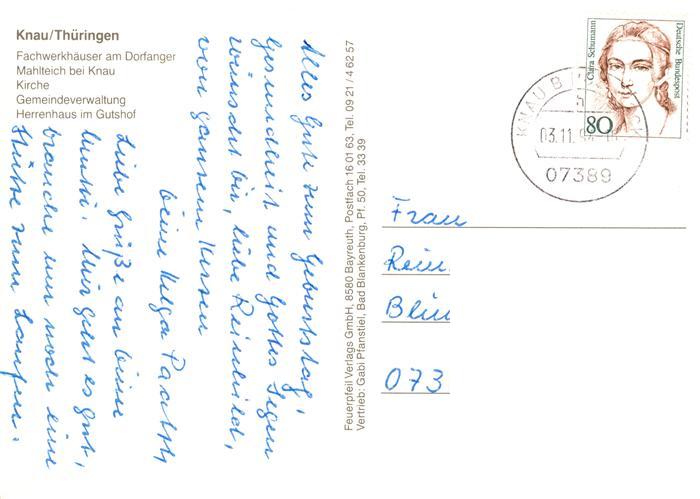 Knau/Thüringen
Fachwerkhäuser am Dorfanger
Mahlteich bei Knau
Kirche
Gemeindeverwaltung
Herrenhaus im Gutshof
Alles Gute zum Geburtstag,
Gesundheit und Gottes Segen
wünscht dir, liebe Reinhild,
von ganzem Herzen
deine Helga
Liebe Grüße an deine
Mutti. Mir geht es gut,
brauche nur noch eine
Stütze zum Laufen.
Feuerpfeil Verlags GmbH, 8580 Bayreuth, Postfach 16 01 63, Tel. 09 21 / 4 62 57
Vertrieb: Gabi Pfanstiel, Bad Blankenburg, Pf. 50, Tel. 33 39
Clara Schumann
Deutsche Bundespost
80
KNAU B
03.11.
07389
Frau
Rein
073